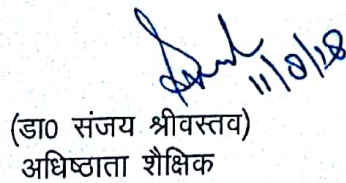 11/8/18
(डा० संजय श्रीवस्तव)
अधिष्ठाता शैक्षिक